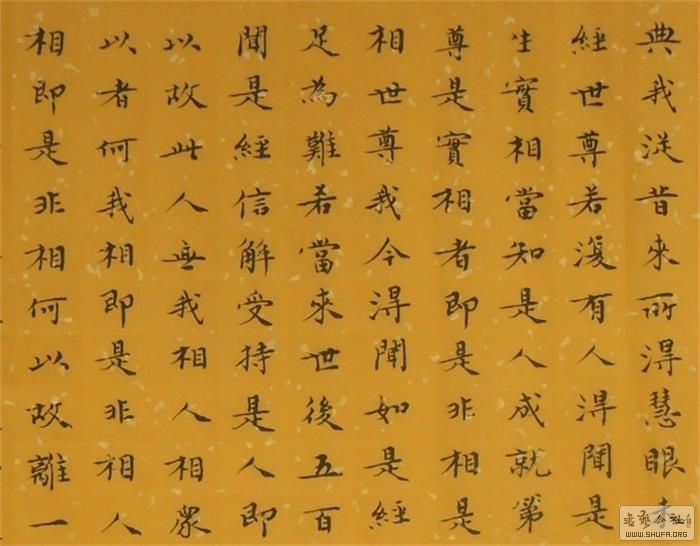 典我從昔來所得慧眼未
經世尊若復有人得聞是
生實相當知是人成就第
尊是實相者即是非相是
相世尊我今得聞如是經
足為難若當來世後五百
聞是經信解受持是人即
以故此人無我相人相眾
以者何我相即是非相人
相即是非相何以故離一
书艺公社
WWW.SHUFA.ORG